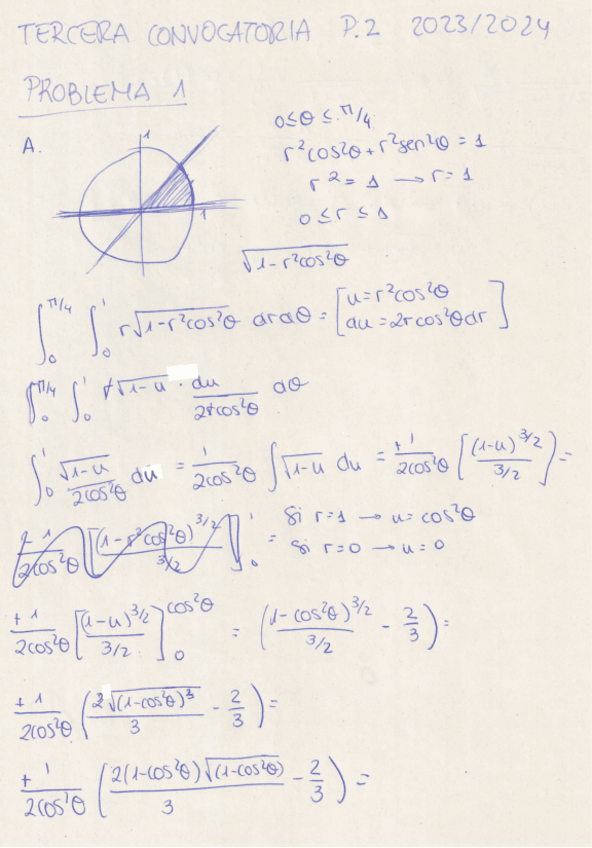 TERCERA CONVOCATORIA P.2 2023/2024
PROBLEMA 1
A.
1
1
0≤θ≤π/4
r²cos²θ+r²sen²θ = 1
r² = 1 → r=1
0 ≤ r ≤ 1
√(1-r²cos²θ)
∫₀^(π/4) ∫₀^1 r√(1-r²cos²θ) drdθ = [u=r²cos²θ
du=2rcos²θdr]
∫₀^(π/4) ∫₀^1 r√(1-u) · du/(2rcos²θ) dθ
∫₀^1 √(1-u)/(2cos²θ) du = 1/(2cos²θ) ∫√(1-u) du = +1/(2cos²θ) [(1-u)^(3/2)/(3/2)] =
+1/(2cos²θ) [(1-r²cos²θ)^(3/2)/(3/2)]₀^1 =
Si r=1 → u=cos²θ
Si r=0 → u=0
+1/(2cos²θ) [(1-u)^(3/2)/(3/2)]₀^(cos²θ) = ((1-cos²θ)^(3/2)/(3/2) - 2/3) =
+1/(2cos²θ) (2√((1-cos²θ)³)/3 - 2/3) =
+1/(2cos²θ) (2(1-cos²θ)√(1-cos²θ)/3 - 2/3) =